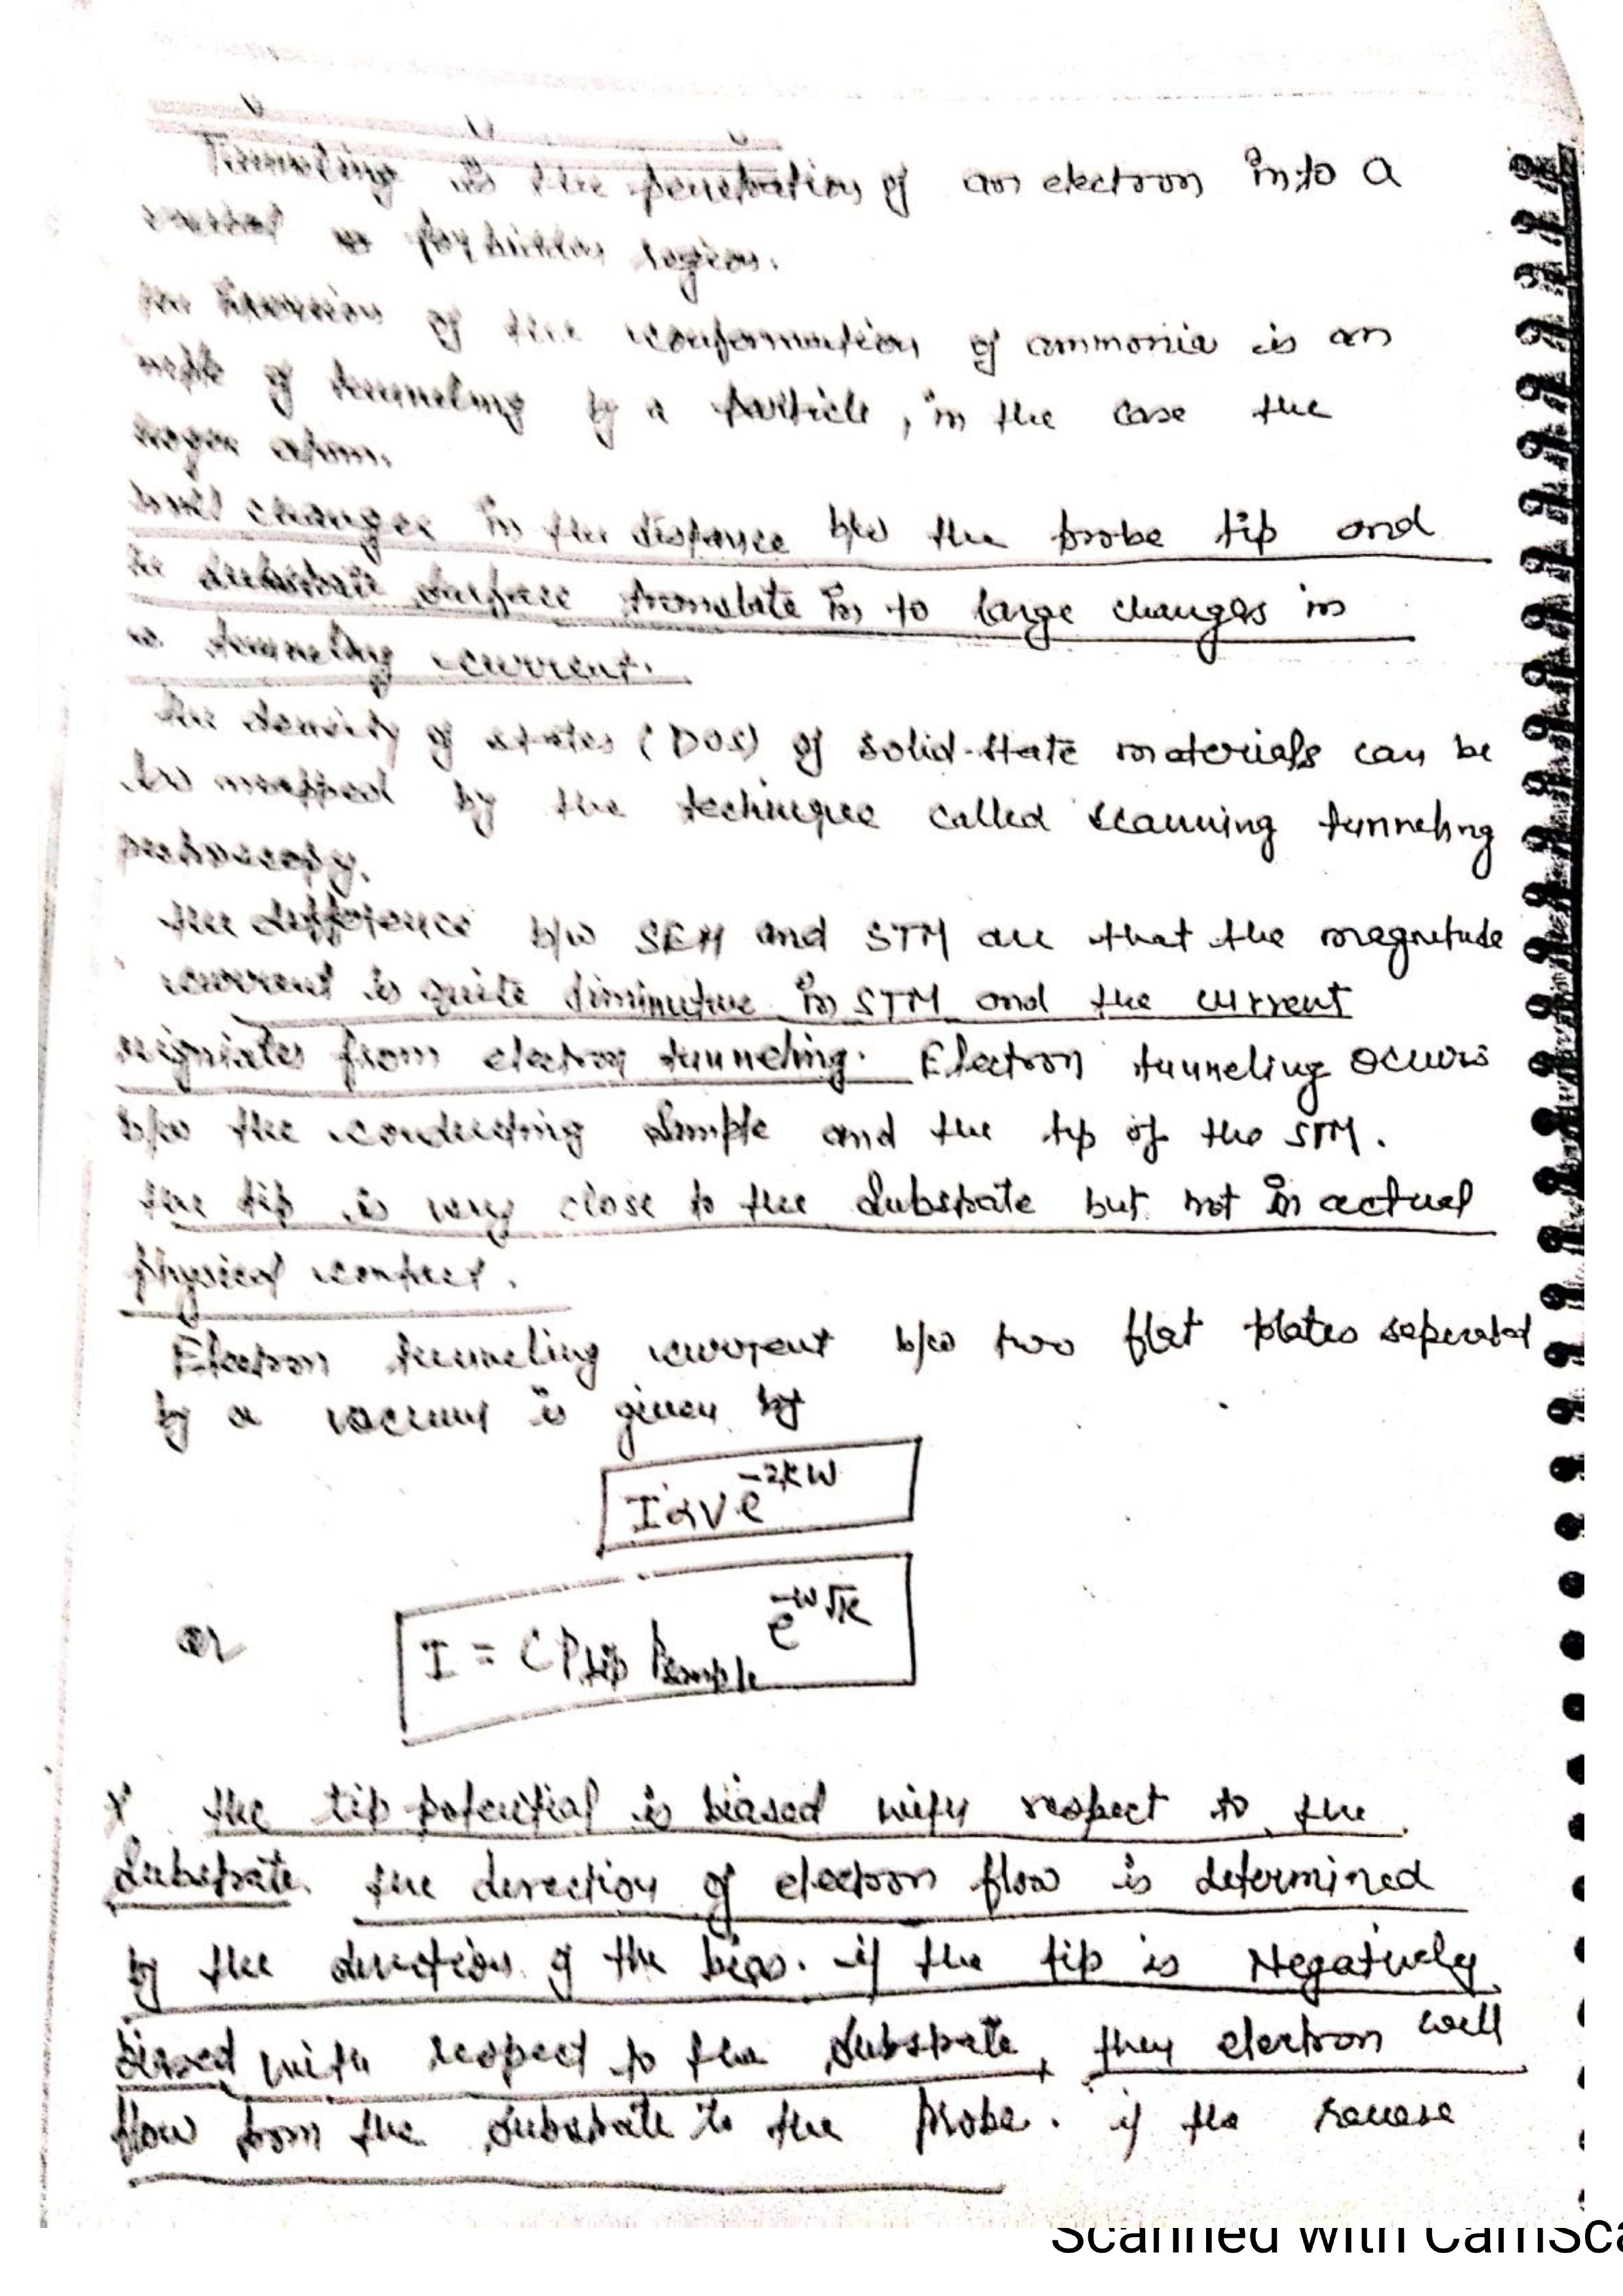 Tunneling is the penetration of an electron into a
forbidden region.
of the conformation of ammonia is an
of tunneling by a particle, in the case the
atom.
changes in the distance b/w the probe tip and
substrate surface translate in to large changes in
tunneling current.
the density of states (DOS) of solid-state materials can be
mapped by the technique called scanning tunneling
the difference b/w SEM and STM are that the magnitude
current is quite diminutive in STM and the current
from electron tunneling. Electron tunneling occurs
b/w the conducting sample and the tip of the STM.
the tip is very close to the substrate but not in actual
physical contact.
Electron tunneling current b/w two flat plates seperated
by a vacuum is given by
I α V e^-2KW
or I = C Ptip Psample e^-w√K
the tip potential is biased with respect to the
substrate. the direction of electron flow is determined
by the direction of the bias. if the tip is Negatively
biased with respect to the substrate, then electron will
flow from the substrate to the probe. if the
Scanned with CamSca